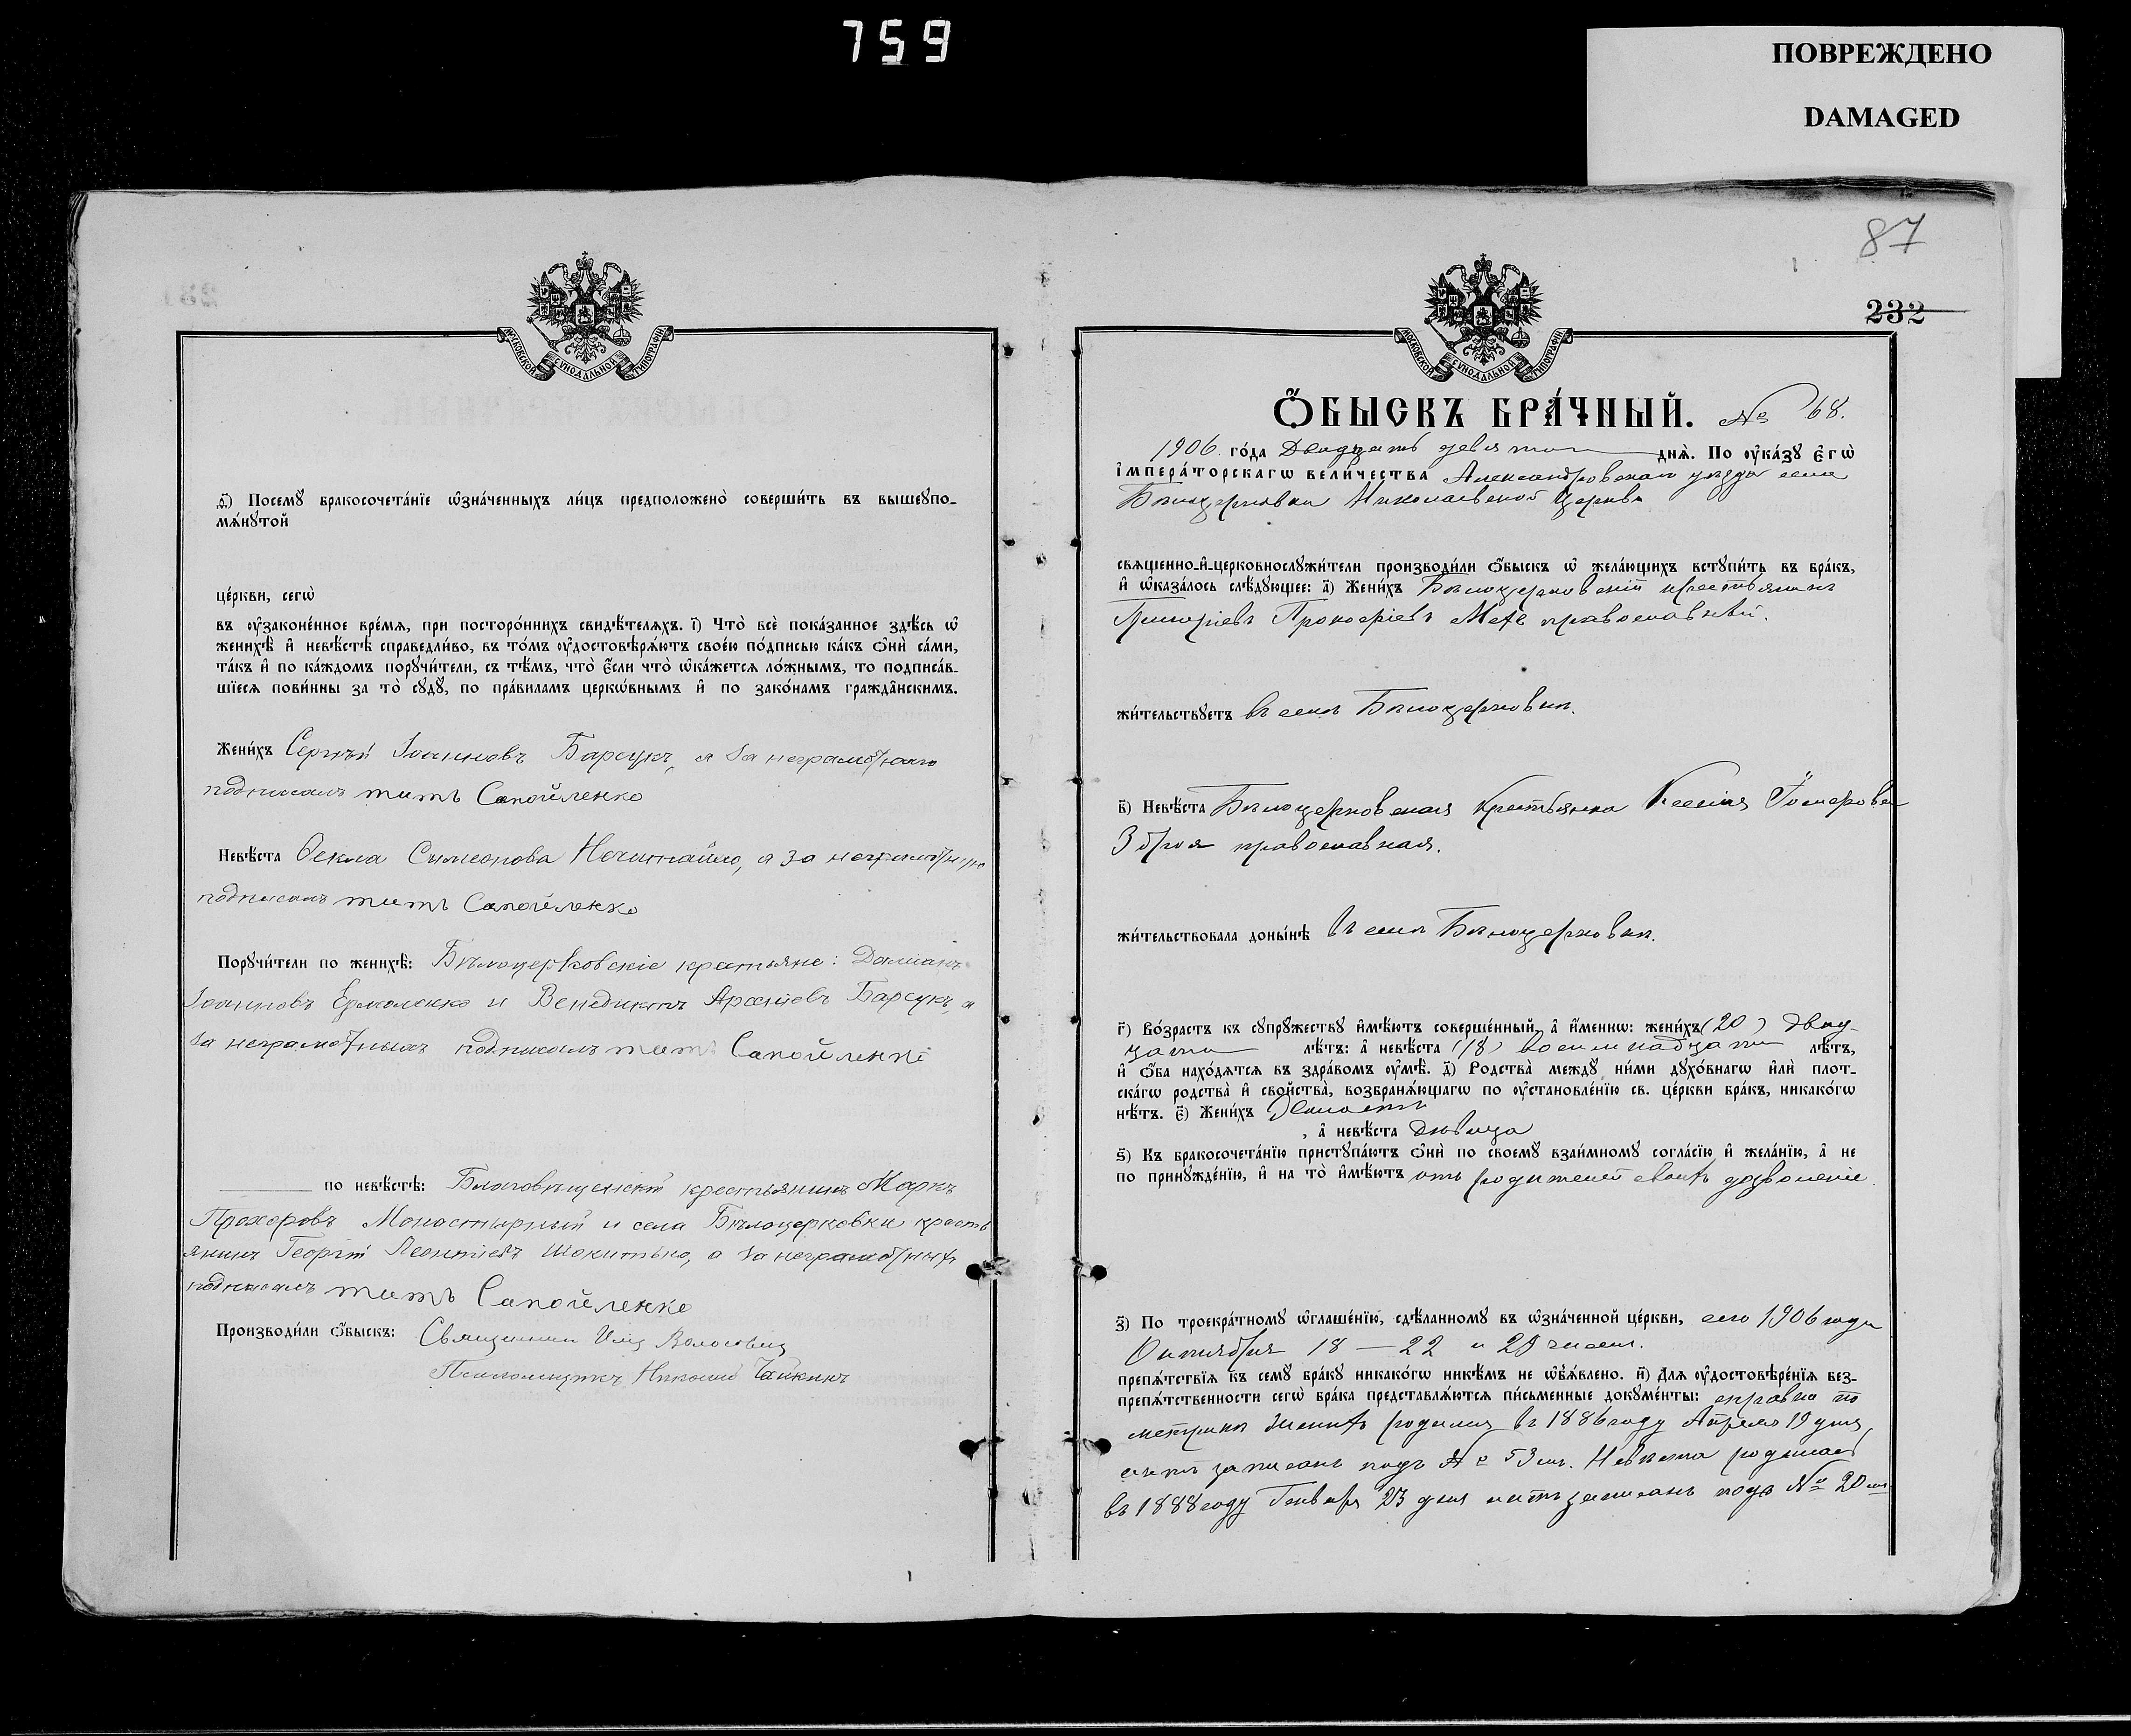 759
ПОВРЕЖДЕНО
DAMAGED
МОСКОВСКОЙ СѴНОДАЛЬНОЙ ТИПОГРАФІИ
ѳ҃) Посемꙋ̀ бракосочета́нїе ѡ҆зна́ченныхъ ли́цъ предположено̀ соверши́ть въ вышеꙋпо-
мѧ́нꙋтой
це́ркви, сегѡ̀
въ ᲂу҆зако́ненное вре́мѧ, при посторо́ннихъ свидѣ́телѧхъ. і҃) Что̀ всѐ пока́занное здѣ́сь ѡ҆
женихѣ̀ и҆ невѣ́стѣ справедли́во, въ то́мъ ᲂу҆достовѣрѧ́ютъ свое́ю по́дписью ка́къ ѻ҆нѝ са́ми,
та́къ и҆ по ка́ждомъ порꙋчи́тели, съ тѣ́мъ, что̀ є҆́сли что̀ ѡ҆ка́жетсѧ ло́жнымъ, то подписа́в-
шїесѧ пови́нны за то̀ сꙋдꙋ̀, по пра́виламъ церкѡ́внымъ и҆ по зако́намъ гражда̑нскимъ.
Жени́хъ Сергѣй Іоанновъ Барсукъ, а за неграмотнаго
подписалъ Титъ Самойленко
Невѣ́ста Ѳекла Симеонова Нечитайло, а за неграмотную
подписалъ Титъ Самойленко
Порꙋчи́тели по женихѣ̀: Бѣлоцерковскіе крестьяне: Даміанъ
Іоанновъ Ермоленко и Венедиктъ Барсукъ, а
за неграмотныхъ подписалъ Титъ Самойленко
по невѣ́стѣ: Благовѣщенскій крестьянинъ Маркъ
Прохоровъ Монастырный и села Бѣлоцерковки кресть
янинъ Георгій Леонтіевъ а за неграмотныхъ
подписалъ Титъ Самойленко
Производи́ли ѻ҆́быскъ: Священникъ
Псаломщикъ Николай Чайкинъ
87
232
МОСКОВСКОЙ СѴНОДАЛЬНОЙ ТИПОГРАФІИ
Ѻ҆́БЫСКЪ БРА́ЧНЫЙ. № 68.
1906. го́да Двадцать девятаго днѧ̀. По ᲂу҆ка́зꙋ є҆гѡ̀
і҆мпера́торскагѡ вели́чества Александровскаго уѣзда села
Бѣлоцерковки Николаевской Церкви
свѧщенно-и҆-церковнослꙋжи́тели производи́ли ѻ҆́быскъ ѡ҆ жела́ющихъ встꙋпи́ть въ бра́къ,
и҆ ѡ҆каза́лось слѣ́дꙋющее: а҃) Жени́хъ Бѣлоцерковскій крестьянинъ
Григорій Прокофіевъ православный.
жи́тельствꙋетъ въ селѣ Бѣлоцерковкѣ.
в҃) Невѣ́ста Бѣлоцерковская Крестьянка Ксенія
православная.
жи́тельствовала доны́нѣ въ селѣ Бѣлоцерковкѣ.
г҃) Во́зрастъ къ сꙋпрꙋ́жествꙋ и҆мѣ́ютъ соверше́нный, а҆ и҆́меннѡ: жени́хъ (20) двад-
цати лѣ́тъ: а҆ невѣ́ста (18) восемнадцати лѣ́тъ,
и҆ ѻ҆́ба нахо́дѧтсѧ въ здра́вомъ ᲂу҆мѣ̀. д҃) Родства̀ междꙋ̀ ни́ми дꙋхо́внагѡ и҆лѝ плот-
ска́гѡ родства̀ и҆ сво́йства̀, возбранѧ́ющагѡ по ᲂу҆становле́нїю св. це́ркви бра́къ, никако́гѡ
нѣ́тъ. є҃) Жени́хъ холостъ
, а҆ невѣ́ста дѣвица
ѕ҃) Къ бракосочета́нїю пристꙋпа́ютъ ѻ҆нѝ по своемꙋ̀ взаи́мномꙋ согла́сїю и҆ жела́нїю, а҆ не
по принꙋжде́нїю, и҆ на то̀ и҆мѣ́ютъ отъ родителей своихъ дозволеніе
з҃) По троекра́тномꙋ ѡ҆глаше́нїю, сдѣ́ланномꙋ въ ѡ҆зна́ченной це́ркви, сего 1906 года
Октября 18 — 22 и 29 чиселъ.
препѧ́тствїѧ къ семꙋ̀ бра́кꙋ никако́гѡ никѣ́мъ не ѡ҆б̾ѧ́влено. и҃) Длѧ ᲂу҆достовѣре́нїѧ без-
препѧ́тственности сегѡ̀ бра́ка представлѧ́ютсѧ пи́сьменные докꙋме́нты: справка по
метрикѣ женихъ родился въ 1886 году Апрѣля 19 дня,
актъ записанъ подъ № 53 мъ. Невѣста родилась
въ 1888 году Генваря 23 дня актъ записанъ подъ № 20 мъ